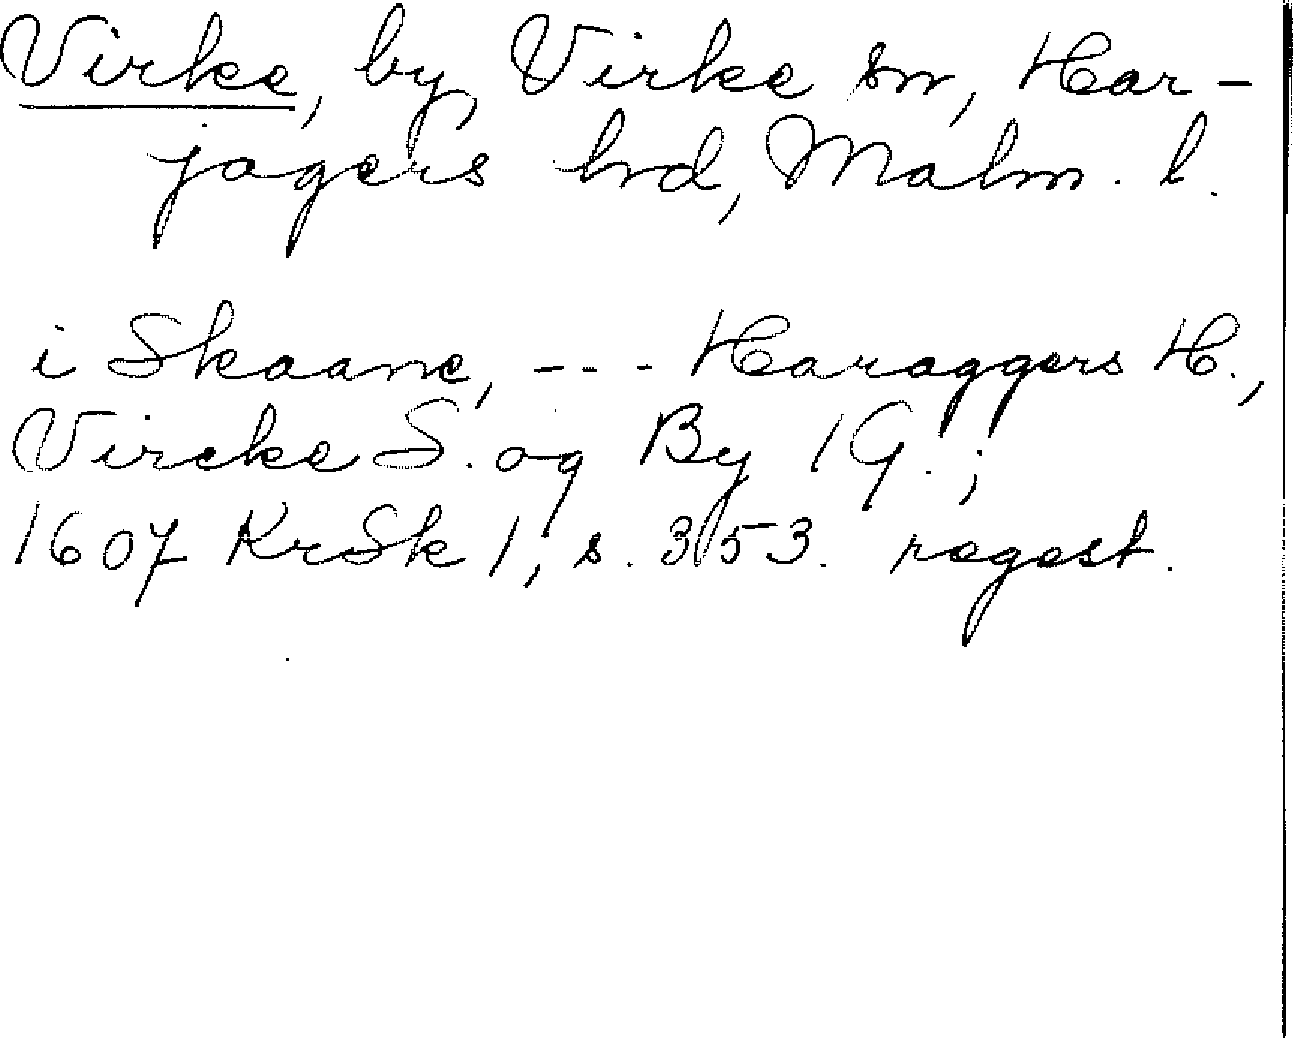 Virke, by, Virke sn, Har-
jagers hrd, Malm. l.
i Skaane, --- Haraggers H.,
Vircke S. og By 1 G.;
1607 KrSk 1, s. 353. regest.